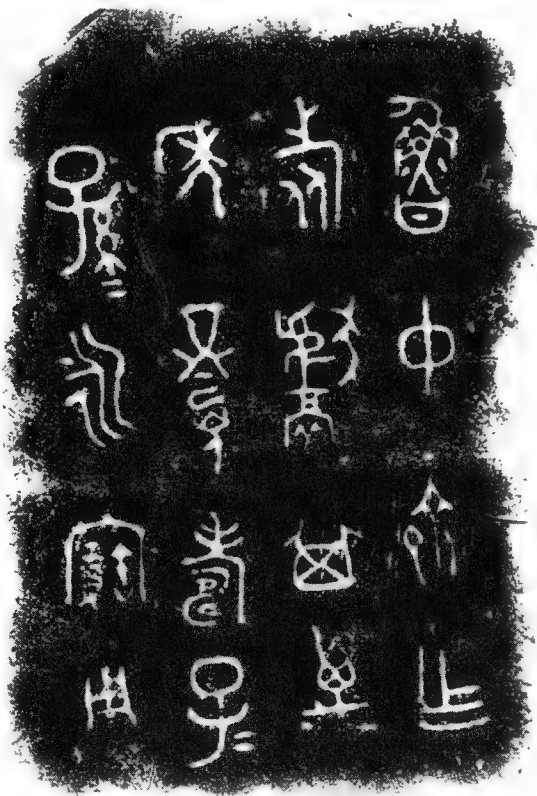 魯中齊乍
旅甗其萬
年眉壽子=
孫=永寶用